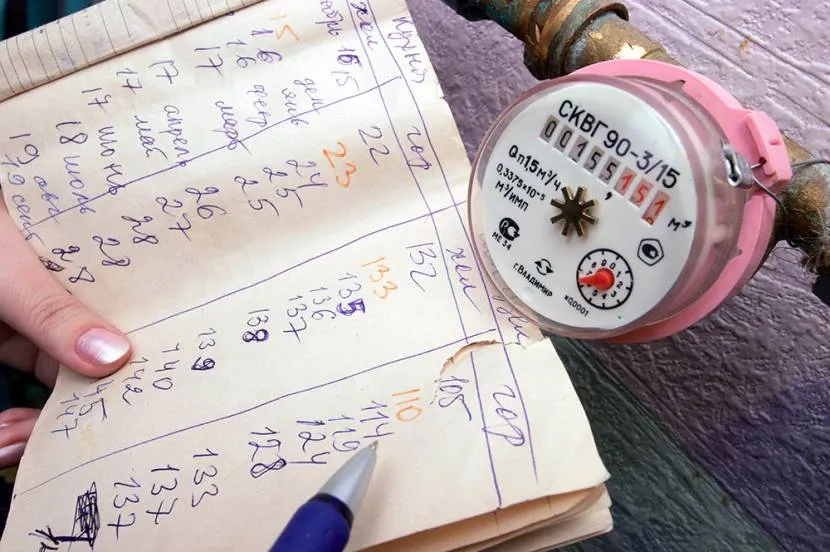 кухня
хол гор хол гор
15 22 132 105
15 дек 23 133 110
16 янв 24 135 114
16 февр 25 136 119
17 март 25 137 124
17 апрель 26 138 128
17 май 27 139 133
17 июнь 28 140 137
18 июль 28 142 137
19 авг 28 145
19 сент 147
СКВГ90-3/15
00155151
м³
Qn1,5м³/ч
0,3375×10⁻⁵
м³/имп
МЕ 34
г. Владимир
x0,0001